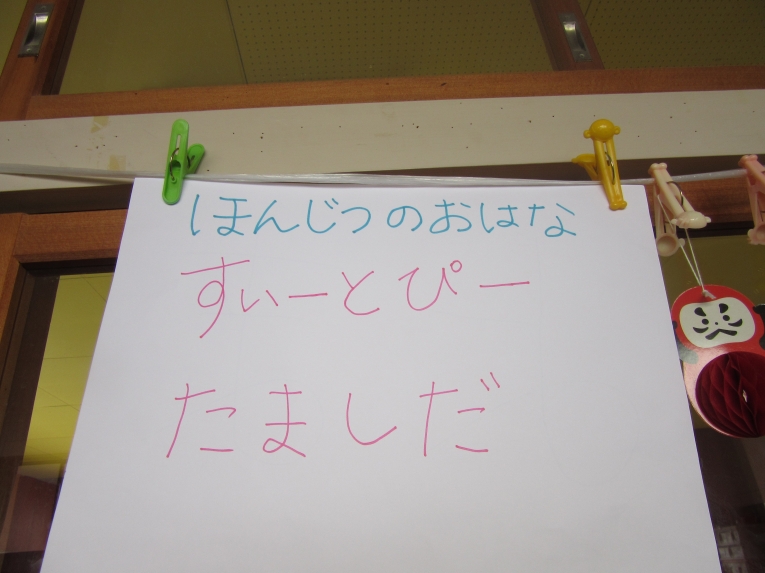 ほんじつのおはな
すぃーとぴー
たましだ